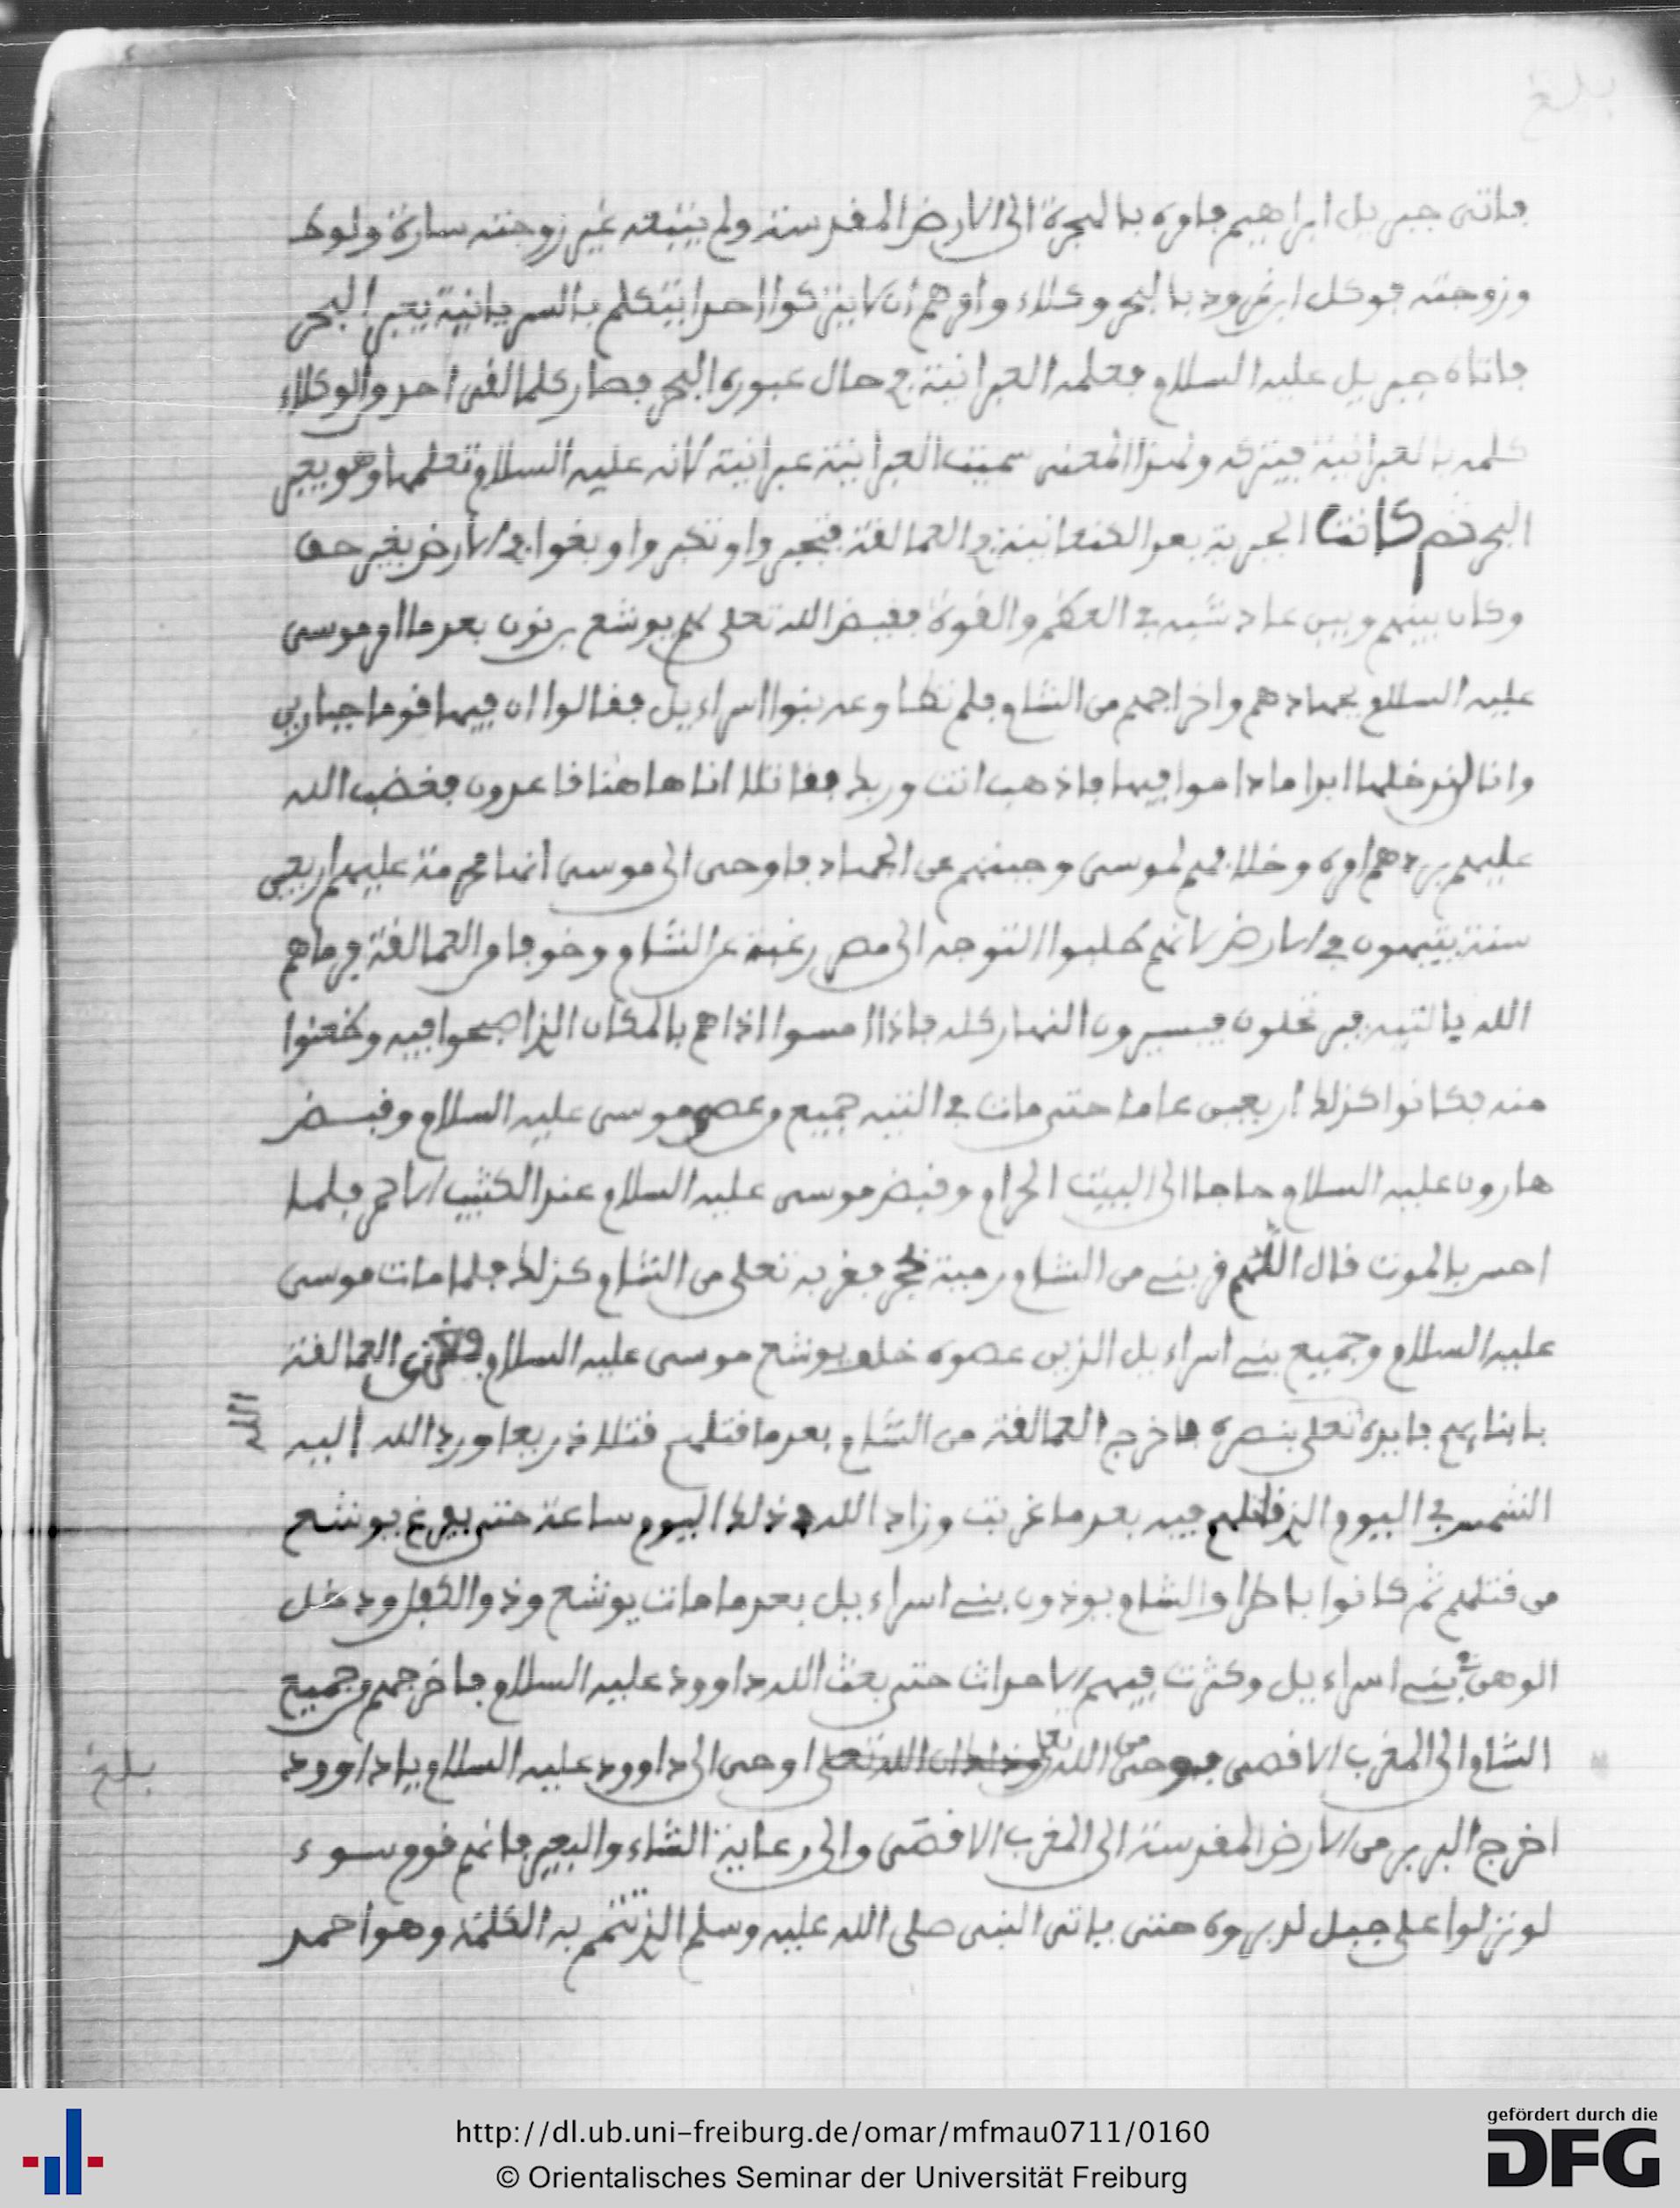 بلغ
فاتى جبريل ابراهيم فامره بالهجرة الى الارض المقدسة ولم يتبعه غير زوجته سارة ولوط
وزوجته فوكل النمرود بالبحر وكلاء وامرهم ان لا يتركوا احدا يتكلم بالسريانية يعبر البحر
فاتاه جبريل عليه السلام فعلمه العبرانية في حال عبوره البحر فصار كلما لقى احد والوكلاء
كلمه بالعبرانية فيتركه ولهذا المعنى سميت العبرانية عبرانية لانه عليه السلام تعلمها وهو يعبر
البحر ثم كانت الجبرية بعد الكنعانية في العمالقة فتجبروا وتكبروا وبغوا في الارض بغير حق
وكان بينهم وبين عاد شبه في العظم والقوة فقيض الله تعلى لهم يوشع بن نون بعد ما امر موسى
عليه السلام بجهادهم واخراجهم من الشام فلم تطاوعه بنوا اسراءيل فقالوا ان فيها قوما جبارين
وانا لن ندخلها ابدا ما داموا فيها فاذهب انت وربك فقاتلا انا هاهنا قاعدون فغضب الله
عليهم بردهم امره وخلافهم لموسى وجبنهم عن الجهاد فاوحى الى موسى انها محرمة عليهم اربعين
سنة يتيهون في الارض لانهم طلبوا التوجه الى مصر رغبة عن الشام وخوفا من العمالقة فرماهم
الله بالتيه فيرتحلون فيسيرون النهار كله فاذا امسوا اذا هم بالمكان الذي اصبحوا فيه وظعنوا
منه فكانوا كذلك اربعين عاما حتى مات في التيه جميع من عصى موسى عليه السلام وقبض
هارون عليه السلام حاجا الى البيت الحرام وقبض موسى عليه السلام عند الكثيب الاحمر فلما
احس بالموت قال اللهم قربني من الشام رمية حجر فقربه تعلى من الشام كذلك فلما مات موسى
عليه السلام وجميع بني اسراءيل الذين عصوه خلف يوشع موسى عليه السلام العمالقة
بابنايهم فايده تعلى بنصره فاخرج العمالقة من الشام بعد ما قتلهم قتلا ذريعا ورد الله اليه
الله
الشمس في اليوم الذي قاتلهم فيه بعد ما غربت وزاد الله في ذلك اليوم ساعة حتى يفرغ يوشع
من قتلهم ثم كانوا باطراف الشام يوذون بني اسراءيل بعد ما مات يوشع وذو الكفل ودخل
الوهن في بني اسراءيل وكثرت فيهم الاحداث حتى بعث الله داوود عليه السلام فاخرجهم من جميع
الشام الى المغرب الاقصى بوحي من الله تعلى وذلك ان الله تعلى اوحى الى داوود عليه السلام يا داوود
بلغ
اخرج البربر من الارض المقدسة الى المغرب الاقصى والى رعاية الشاء والبعير فانهم قوم سوء
لو نزلوا على جبل لدبروه حتى ياتى النبى صلى الله عليه وسلم الذي تتم به الكلمة وهو احمد
http://dl.ub.uni-freiburg.de/omar/mfmau0711/0160
© Orientalisches Seminar der Universität Freiburg
gefördert durch die
DFG